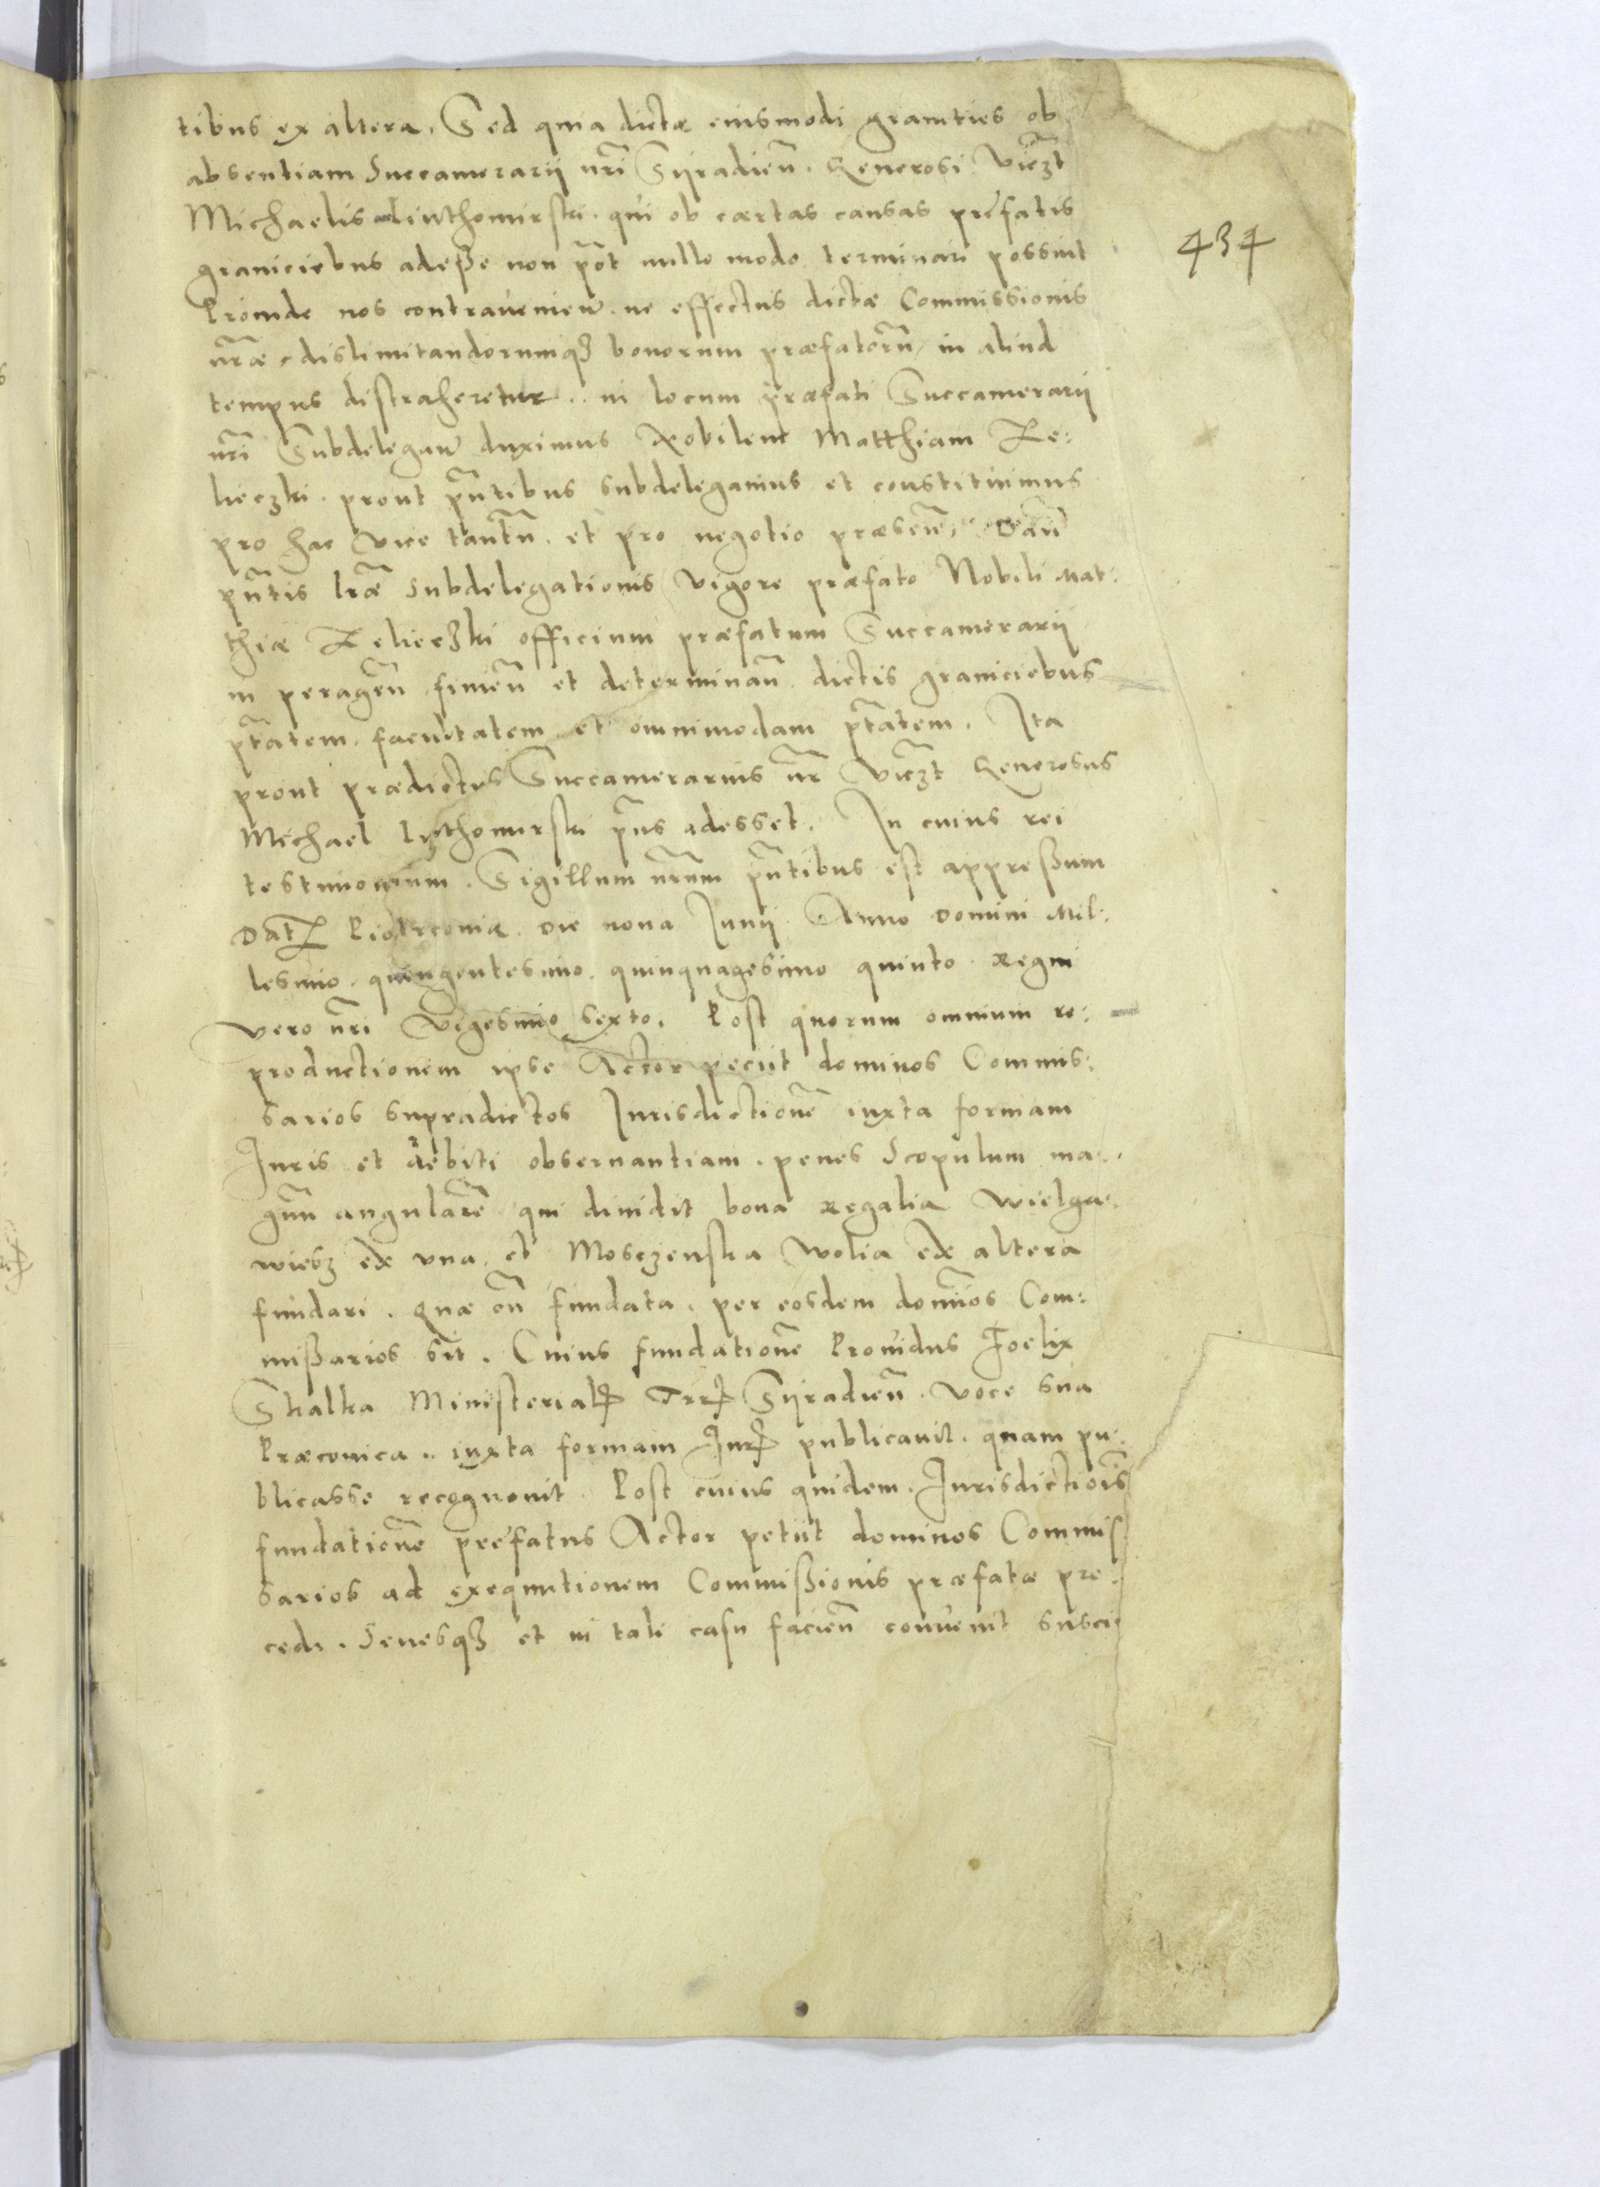 tibus ex altera. Sed quia dictæ eiusmodi granities ob
absentiam Succamerarii nr̃i Syradien̄. Generosi Vic̃zt
Michaelis Linthomirski. qui ob cærtas causas præfatis
graniciebus adeße non põt nullo modo terminari possint
Proinde nos contravenien̄. ne effectus dictæ Commissionis
nr̃æ dislimitandorumqȝ bonorum præfator̃u in aliud
tempus distraheretur. in locum præfati Succamerarii
nr̃i Subdelegan̄ duximus Nobilem Matthiam Re:
lieczki. prout pñtibus subdelegamus et constituimus
pro hac vice tantũ. et pro negotio præsen̄. Dan̄
pñtis lr̃æ subdelegationis vigore præfato Nobili Mat:
thiæ Relieczki officium præfatum Succamerarii
in peragen̄ finien̄ et determinan̄ dictis graniciebus
pt̃atem. facultatem et omnimodam pt̃atem. Ita
prout prædictus Succamerarius nr̃ Vic̃zt Generosus
Michael Lythomirski pñs adesset. In cuius rei
testimonium. Sigillum nr̃um pñtibus est appreßum
Dat Piotrconiæ. die nona Junii Anno Domini Mil:
lesimo. quingentesimo. quinquagesimo quinto. Regni
vero nr̃i Vigesimo sexto. Post quorum omnium re:
productionem ipse Actor peciit dominos Commis:
sarios supradictos Jurisdictionẽ iuxta formam
Juris et debiti observantiam. penes Scopulum ma:
gnũ angularẽ qui dividit bona Regalia Wielga:
wiesȝ ex una et Mosczenska Wolia ex altera
fundari. Quæ eñ fundata. per eosdem dominos Com:
mißarios est. Cuius fundationẽ Providus Foelix
Skalka Ministerial Trr Syradien̄. voce sua
Præconica. iuxta formam Jur publicavit. quam pu:
blicasse recognovit. Post cuius quidem. Jurisdictionis
fundationẽ præfatus Actor petiit dominos Commis
sarios ad exequutionem Commißionis præfatæ pro:
cedi. Seuesqȝ et in tali casu facien̄ convenit susci
434